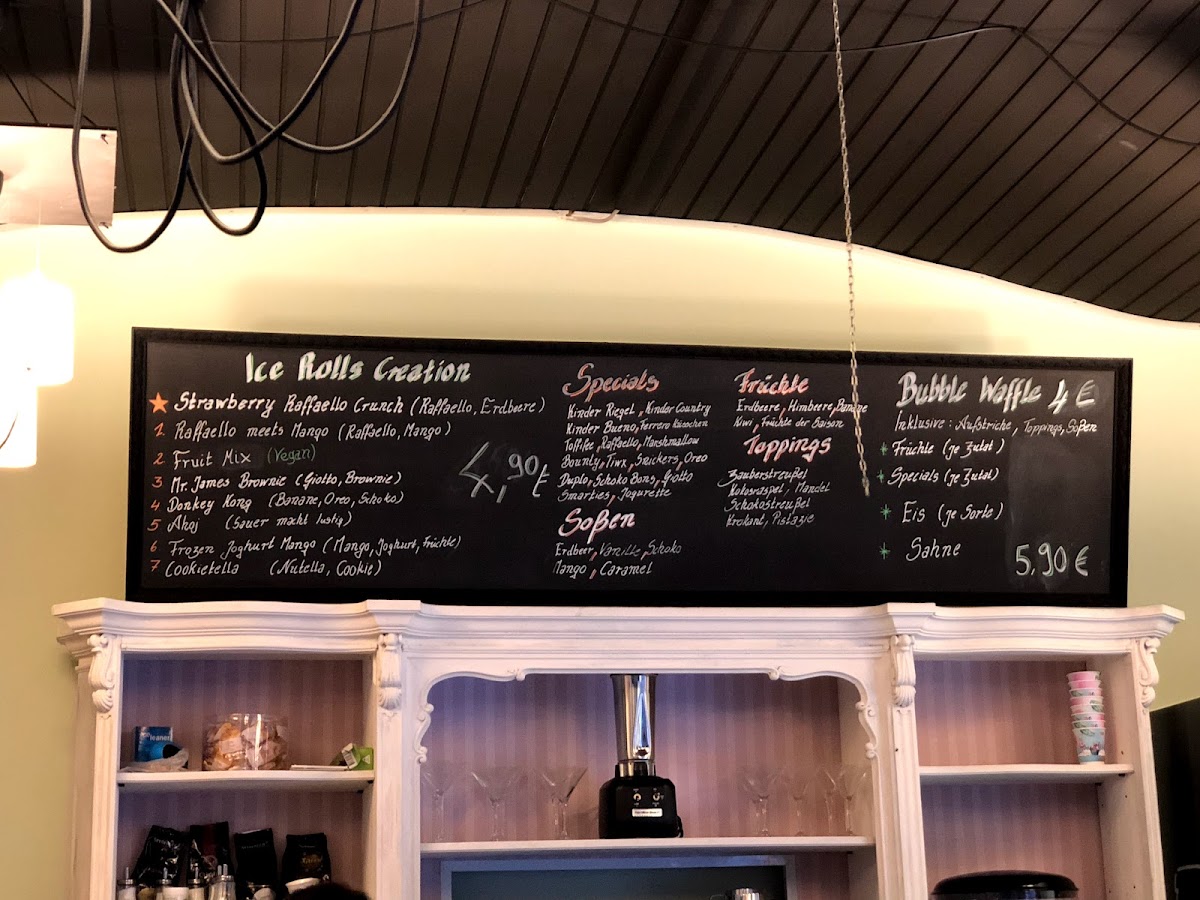 Ice Rolls Creation
Strawberry Raffaello Crunch (Raffaello, Erdbeere)
1 Raffaello meets Mango (Raffaello, Mango)
2 Fruit Mix (Vegan)
3 Mr. James Brownie (Giotto, Brownie)
4 Donkey Kong (Banane, Oreo, Schoko)
5 Ahoj (Sauer macht lustig)
6 Frozen Joghurt Mango (Mango, Joghurt, Früchte)
7 Cookietella (Nutella, Cookie)
4,90€
Specials
Kinder Riegel, Kinder Country
Kinder Bueno, Ferrero Küsschen
Toffifee, Raffaello, Marshmallow
Bounty, Twix, Snickers, Oreo
Duplo, Schoko Bons, Giotto
Smarties, Jogurette
Soßen
Erdbeer, Vanille, Schoko
Mango, Caramel
Früchte
Erdbeere, Himbeere, Banane
Kiwi, Früchte der Saison
Toppings
Zauberstreußel
Kokosraspel, Mandel
Schokostreußel
Krokant, Pistazie
Bubble Waffle 4 €
Inklusive: Aufstriche, Toppings, Soßen
Früchte (je Zutat)
Specials (je Zutat)
Eis (je Sorte)
Sahne
5,90 €